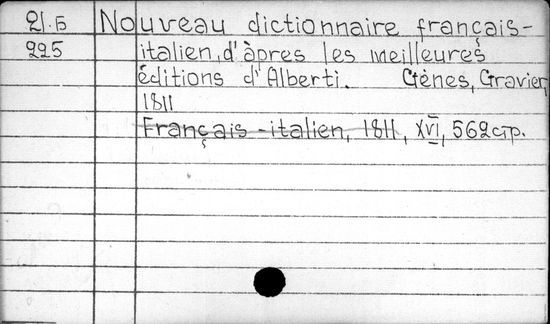 21.Б Nouveau dictionnaire français-
225 italien, d'àpres les meilleures
éditions d'Alberti. Gènes, Gravier,
1811
Français-italien, 1811, XVI, 562стр.